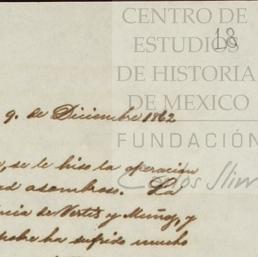 CENTRO DE
ESTUDIOS
DE HISTORIA
DE MEXICO
FUNDACIÓN
Carlos Slim
18
9. de Diciembre 1862
se le hiso la operacion
asombroso. La
de Vertiz y Muñoz, y
ha sufrido mucho